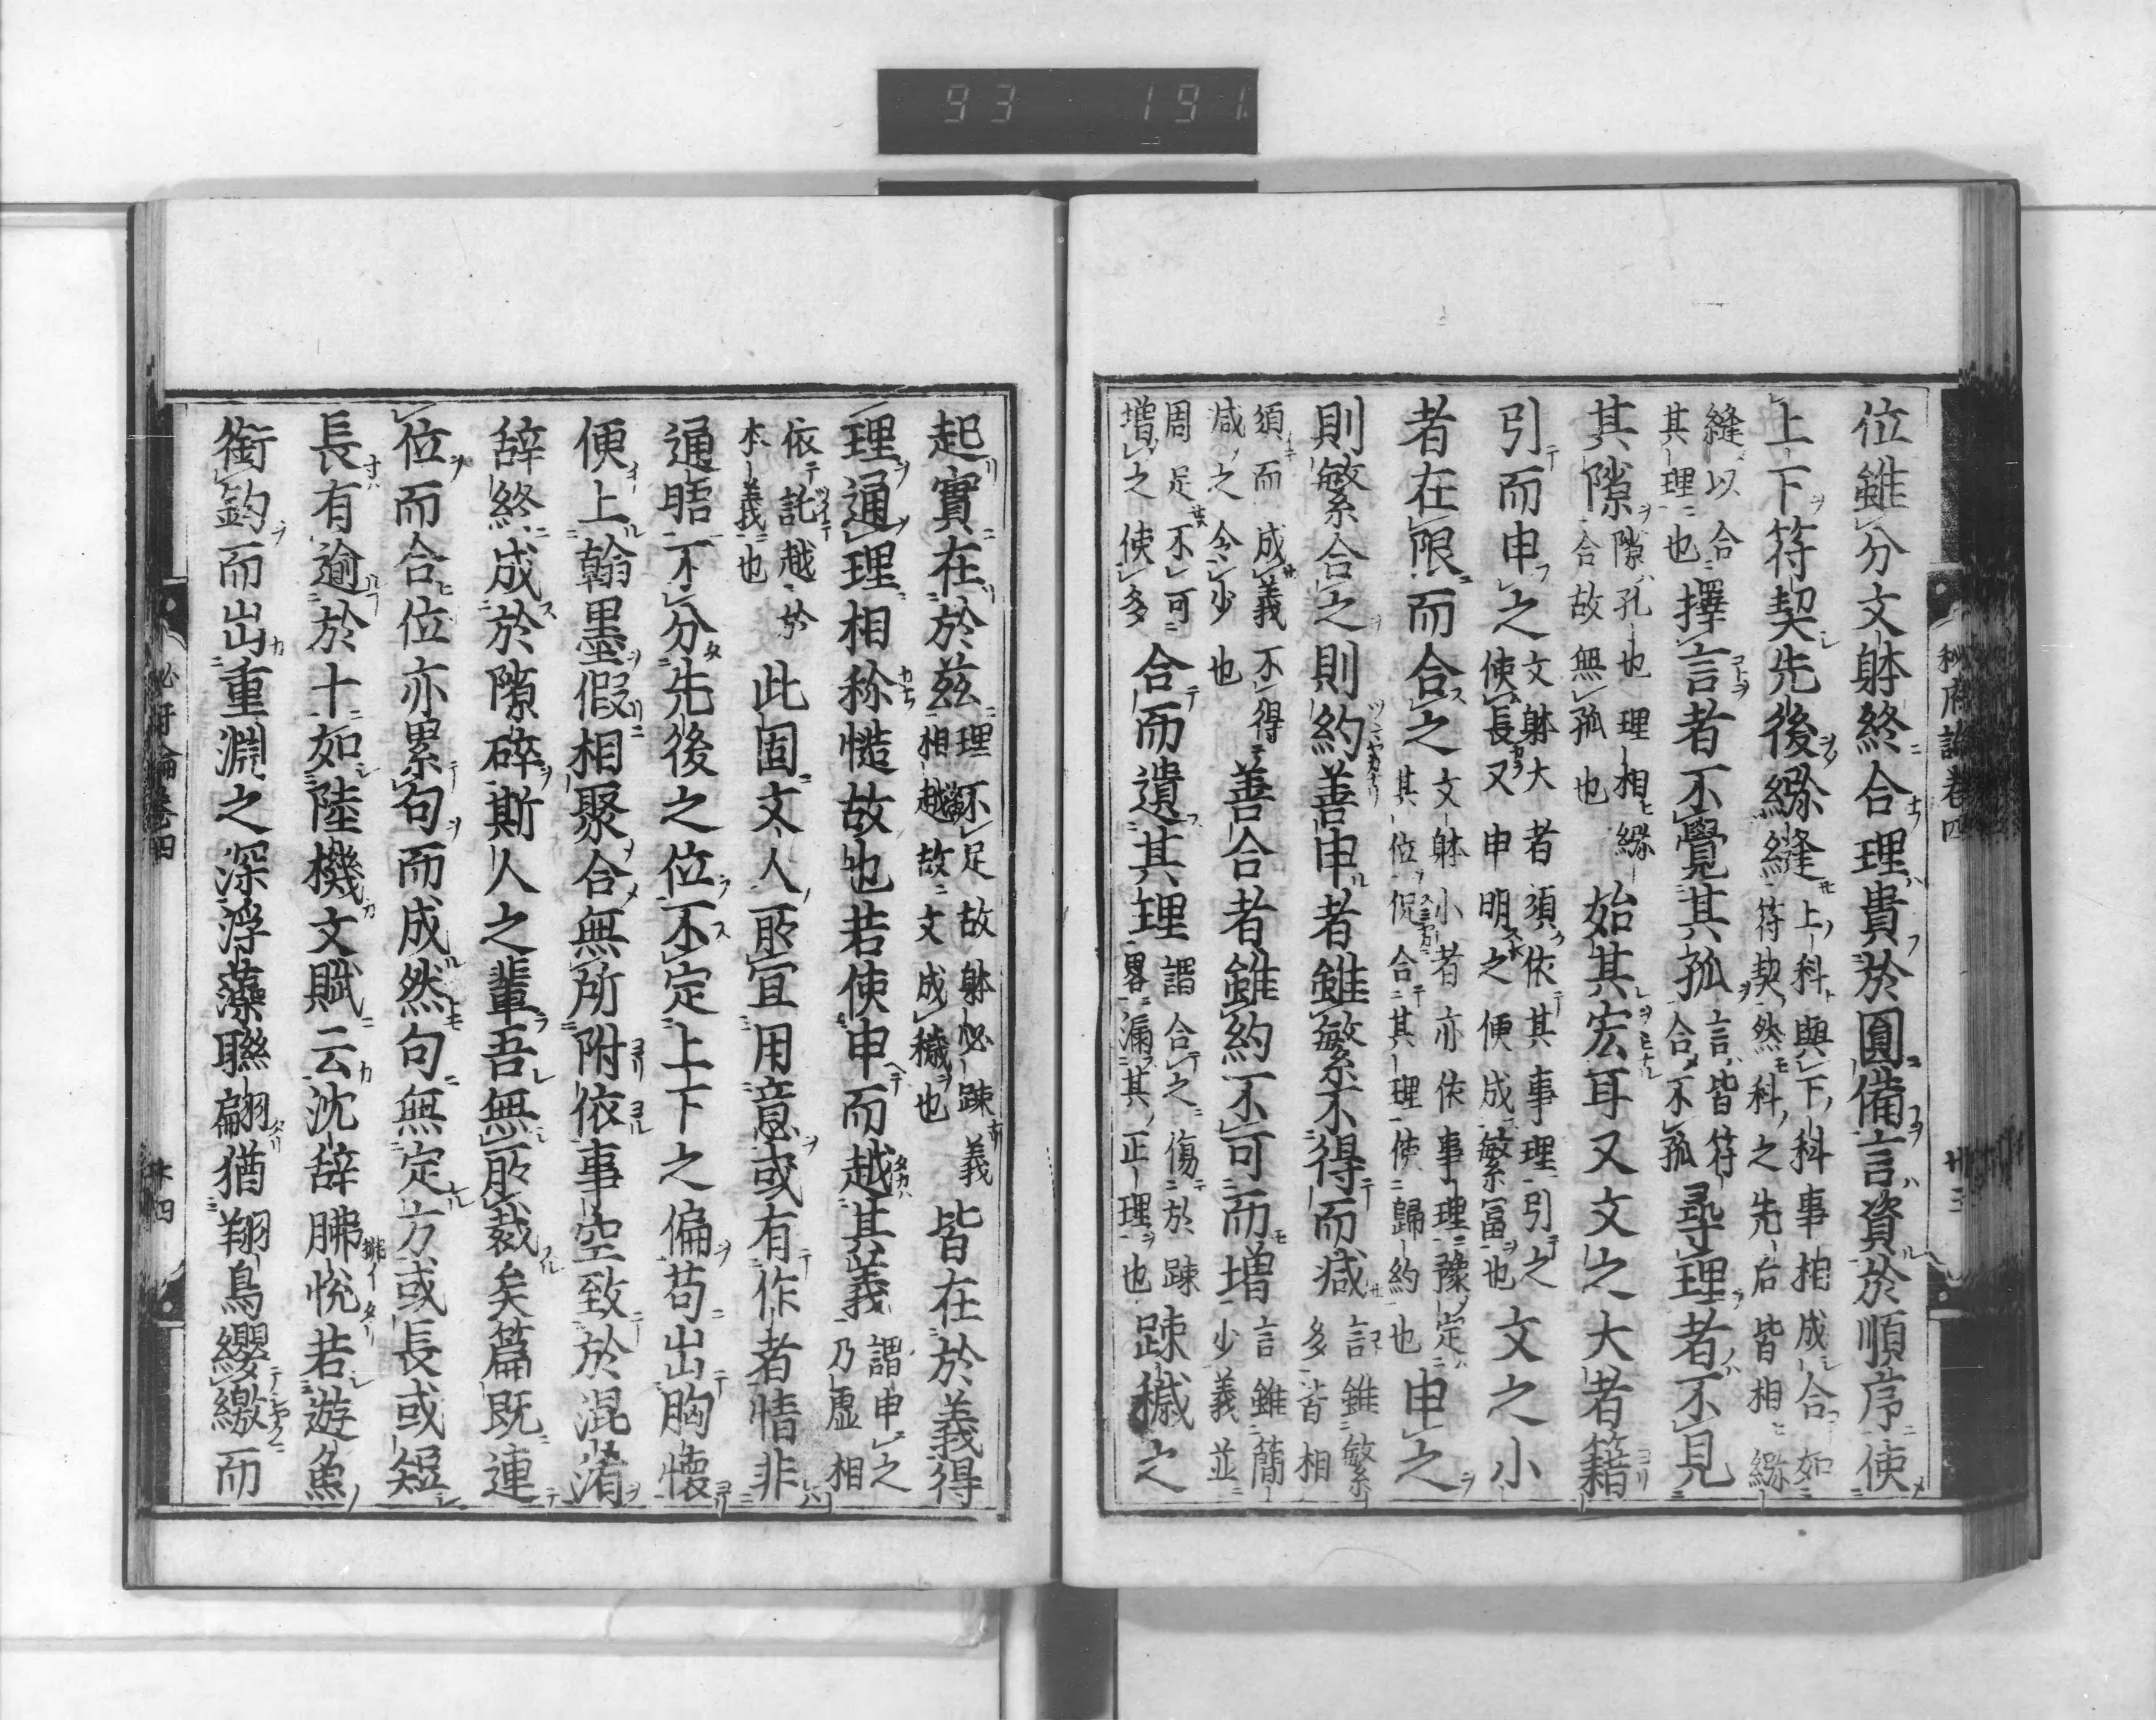 93 191
秘府論卷四
廿三
位雖分文躰終合理貴於圓備言資於順序使
上下符契先後緜縫
上科與下科事相成合如
符契然科之先后皆相緜
縫以合
其理也
擇言者不覺其孤
言皆符
合不孤
尋理者不見
其隙
隙孔也理相緜
合故無孤也
始其宏耳又文之大者籍
引而申之
文躰大者須依其事理引之
使長又申明之便成繁冨也
文之小
者在限而合之
文躰小者亦依事理豫定
其位促合其理使歸約也
申之
則繁合之則約善申者雖繁不得而減
言雖繁
多皆相
須而成義不得
减之令少也
善合者雖約不可而増
言雖簡
少義並
周足不可
増之使多
合而遺其理
謂合之傷於踈
畧漏其正理也
踈穢之
起實在於兹
理不足故躰必踈義
相越故文成穢也
皆在於義得
理通理相称愜故也若使申而越其義
謂申之
乃虚相
依託越於
本義也
此固文人所宜用意或有作者情非
通晤不分先後之位不定上下之偏苟出胸懐
便上翰墨假相聚合無所附依事空致於混淆
辞終成於隙碎斯人之輩吾無所裁矣篇既連
位而合位亦累句而成然句無定方或長或短
長有逾於十如陸機文賦云沈辞怫悦若遊魚
銜鈎而出重淵之深浮藻聯翩猶翔鳥纓繳而